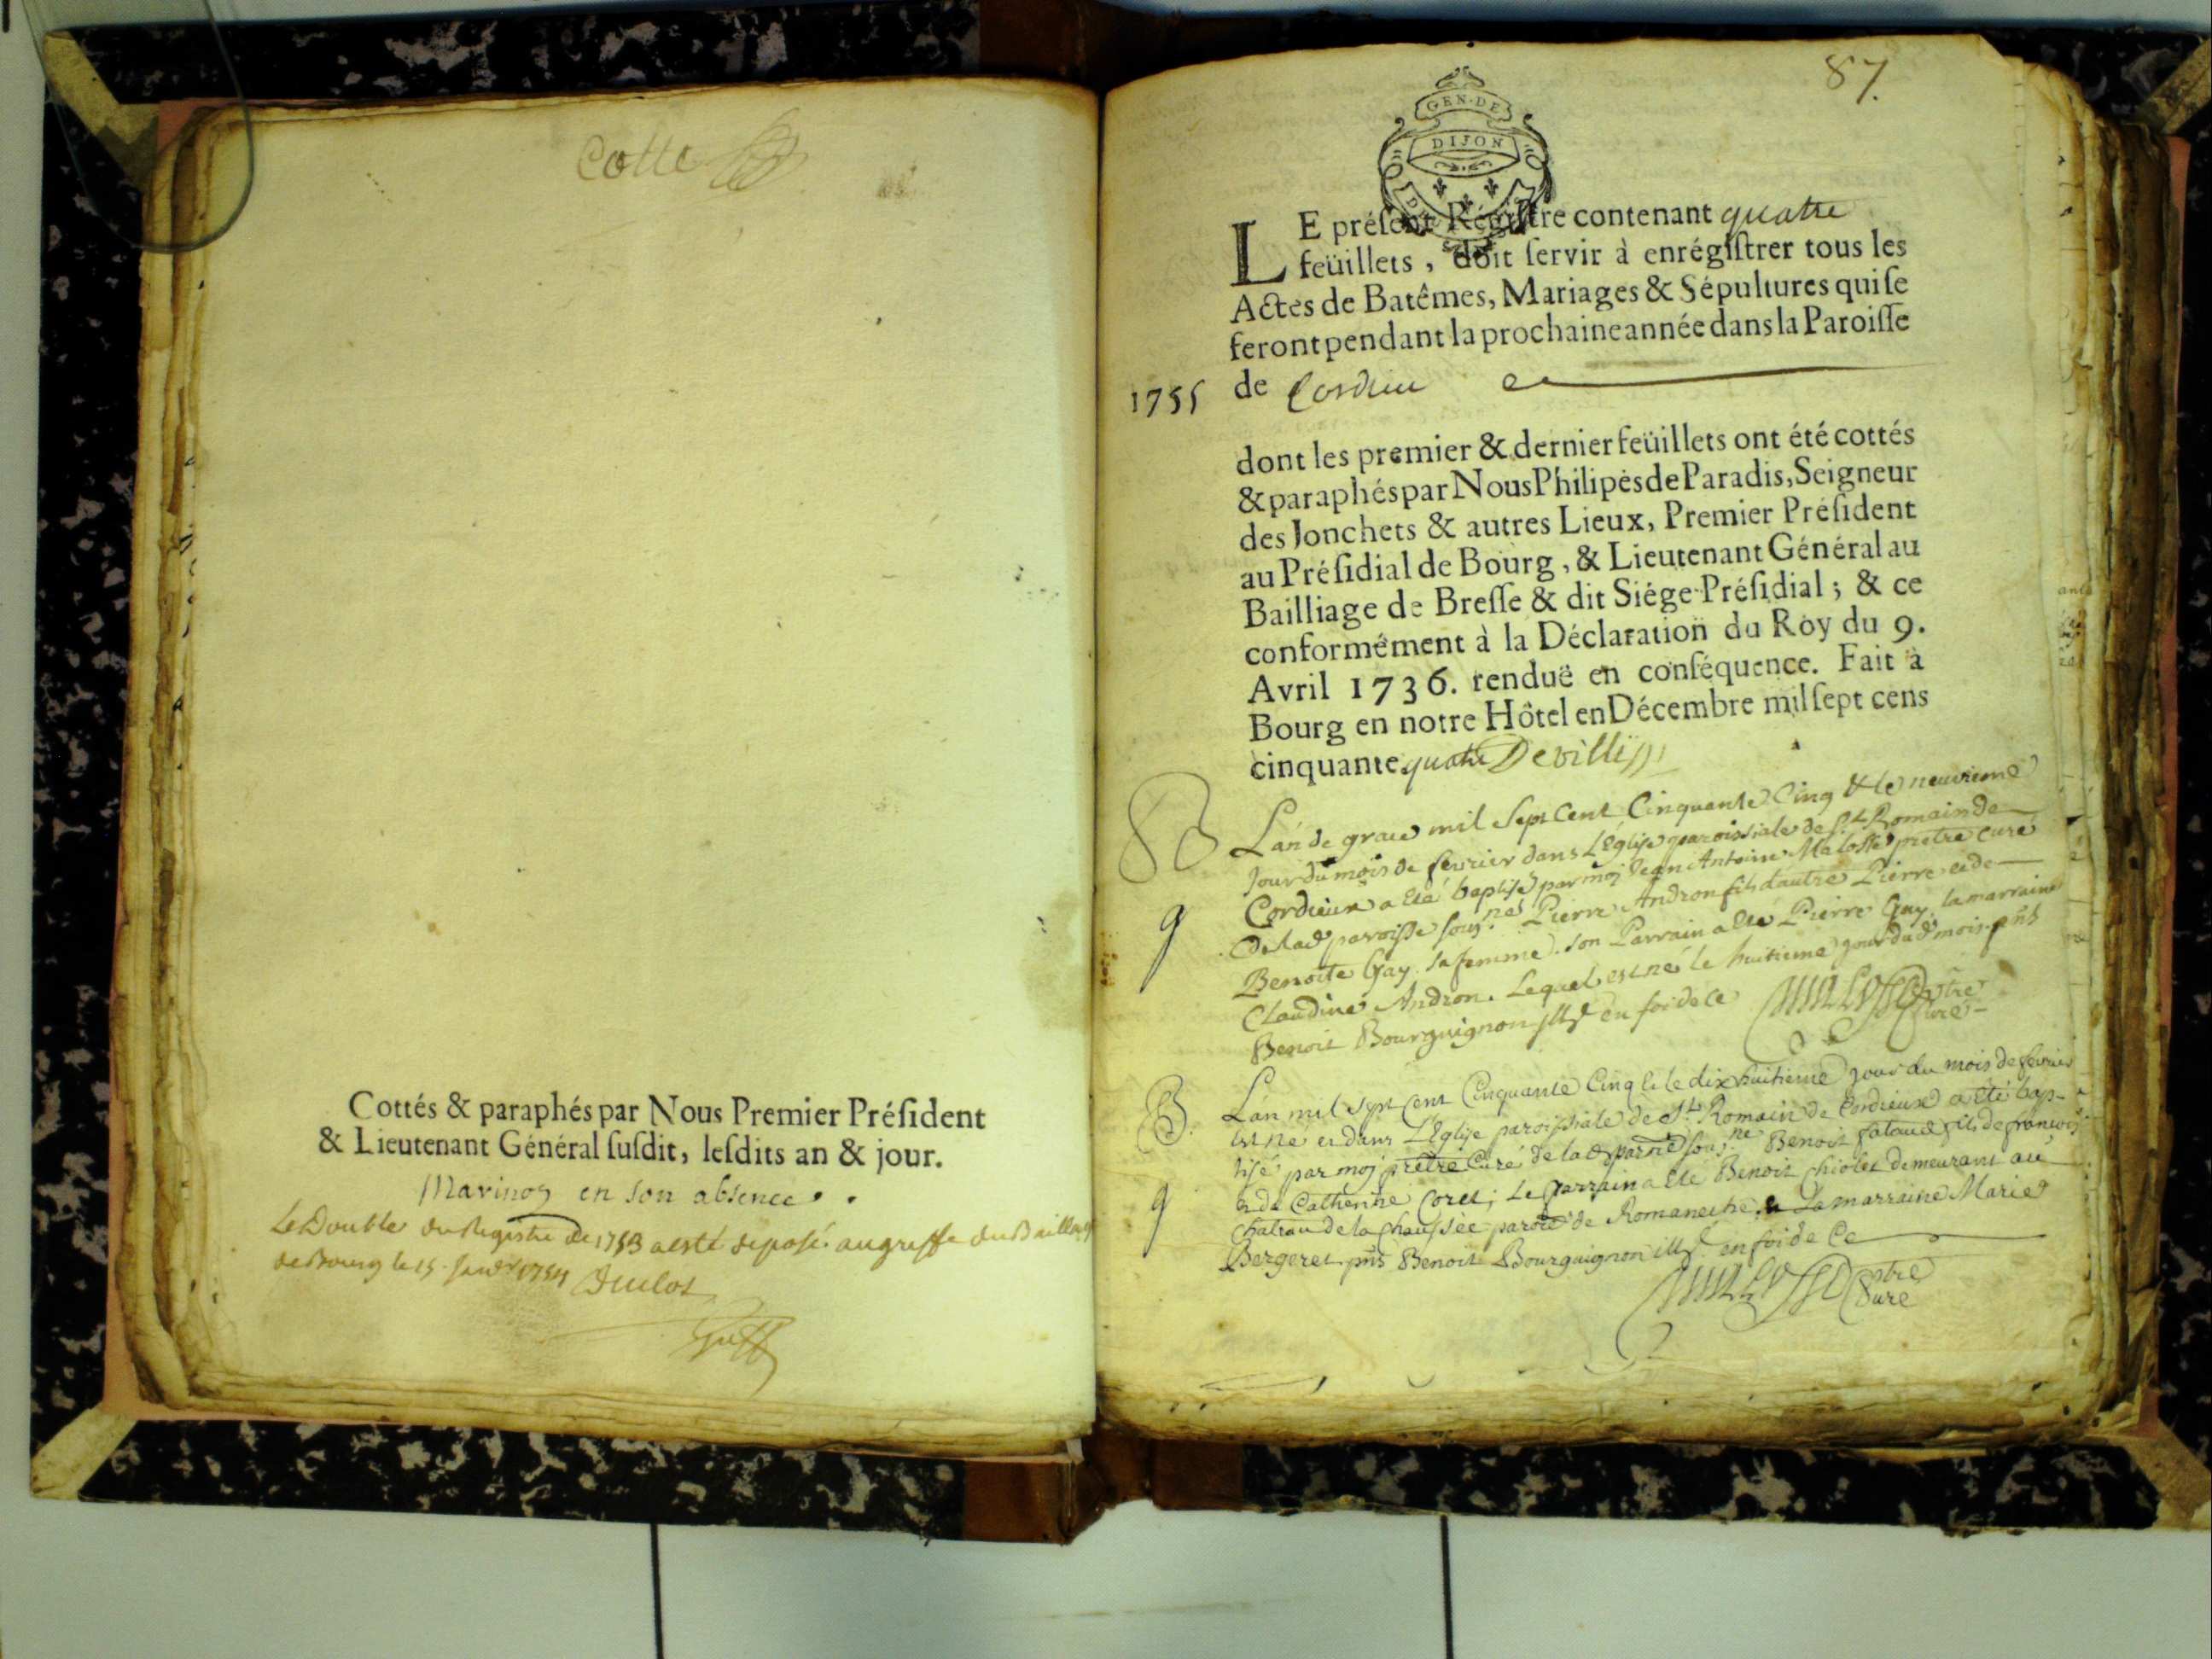 Cotté
Cottés & paraphés par Nous Premier Préſident
& Lieutenant Général ſuſdit, leſdits an & jour.
en son absence
Le Double du Registre de 1753 a esté deposé au greffe du Bailliage
de Bourg le 15 Janvr 1754
87.
GEN. DE
DIJON
LE préſent Régiſtre contenant quatre
feüillets, doit ſervir à enrégiſtrer tous les
Actes de Batêmes, Mariages & Sépultures qui ſe
feront pendant la prochaine année dans la Paroiſſe
1755 de Cordieu
dont les premier & dernier feüillets ont été cottés
& paraphés par Nous Philipes de Paradis, Seigneur
des Jonchets & autres Lieux, Premier Préſident
au Préſidial de Bourg, & Lieutenant Général au
Bailliage de Breſſe & dit Siége Préſidial; & ce
conformément à la Déclaration du Roy du 9.
Avril 1736. renduë en conſéquence. Fait à
Bourg en notre Hôtel en Décembre mil ſept cens
cinquante quatre
B
L'an de grace mil Sept Cent Cinquante Cinq & le neuvieme
Jour du mois de fevrier dans L'Eglise paroissiale de St Romain de
Cordieux a été baptisé par moj Jean Antoine Malosse prêtre curé
g
De lad paroisse sous.né Pierre Andron fils d'autre Pierre et de
Benoite Gay sa femme. son Parrain a été Pierre Gay, la marraine
Claudine Andron. Lequel est né le huitieme jour dud mois. pñs
Benoit Bourguignon ill.é en foi de ce
ptre
Curé
B.
L'an mil sept cent Cinquante Cinq & le dix huitieme jour du mois de fevrier
est né et dans L'Eglise paroissiale de St Romain de Cordieux a été bap-
tisé par moj prêtre Curé de lad parsse sous.né Benoit fataud fils de françois
g
et de Catherine Coret; Le parrain a été Benoit Chiolet demeurant au
Chateau de la Chaussée paroisse de Romaneche, & La marraine Marie
Bergeret pñs Benoit Bourguignon ill.é en foi de Ce
ptre
Curé